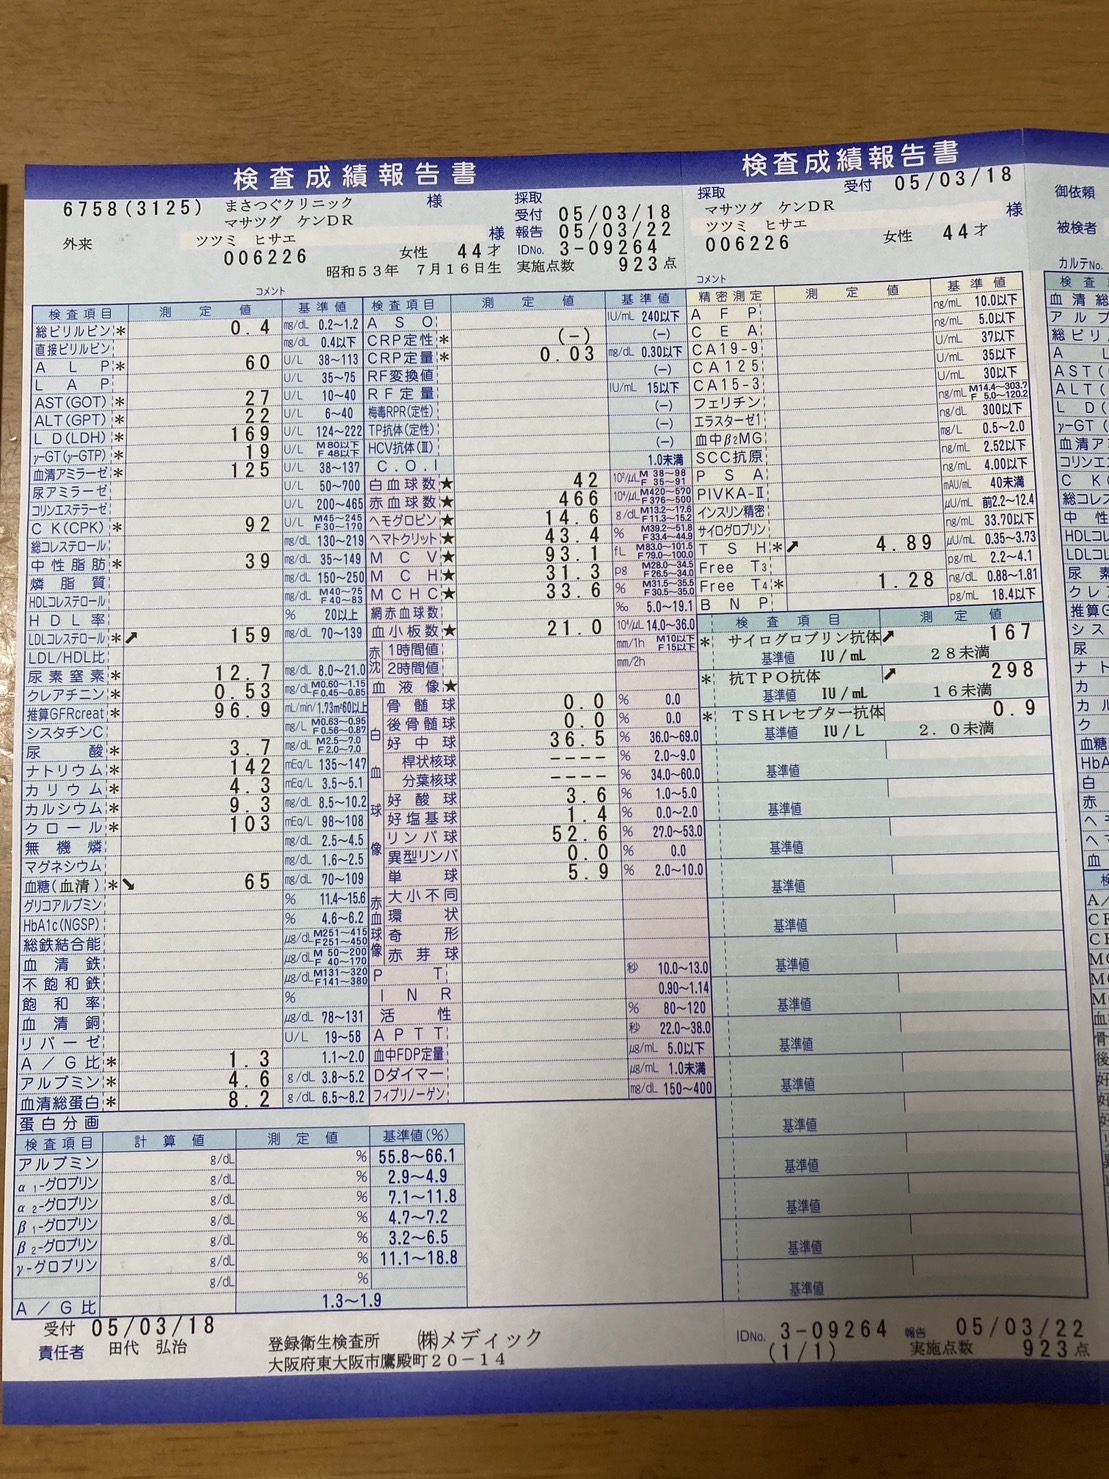 検査成績報告書
6758(3125) まさつぐクリニック 様
マサツグ ケンDR
外来 ツツミ ヒサエ 様
006226 女性 44才
昭和53年 7月16日生
採取
受付 05/03/18
報告 05/03/22
IDNo. 3-09264
実施点数 923点
コメント
検査項目 測定値 基準値
総ビリルビン * 0.4 mg/dL 0.2~1.2
直接ビリルビン mg/dL 0.4以下
ALP * 60 U/L 38~113
LAP U/L 35~75
AST(GOT) * 27 U/L 10~40
ALT(GPT) * 22 U/L 6~40
LD(LDH) * 169 U/L 124~222
γ-GT(γ-GTP) * 19 U/L M80以下 F48以下
血清アミラーゼ * 125 U/L 38~137
尿アミラーゼ U/L 50~700
コリンエステラーゼ U/L 200~465
CK(CPK) * 92 U/L M45~245 F30~170
総コレステロール mg/dL 130~219
中性脂肪 * 39 mg/dL 35~149
燐脂質 mg/dL 150~250
HDLコレステロール mg/dL M40~75 F40~83
HDL率 % 20以上
LDLコレステロール * ↗ 159 mg/dL 70~139
LDL/HDL比
尿素窒素 * 12.7 mg/dL 8.0~21.0
クレアチニン * 0.53 mg/dL M0.60~1.15 F0.45~0.85
推算GFRcreat * 96.9 mL/min/1.73m²60以上
シスタチンC mg/L M0.63~0.95 F0.56~0.87
尿酸 * 3.7 mg/dL M2.5~7.0 F2.0~7.0
ナトリウム * 142 mEq/L 135~147
カリウム * 4.3 mEq/L 3.5~5.1
カルシウム * 9.3 mg/dL 8.5~10.2
クロール * 103 mEq/L 98~108
無機燐 mg/dL 2.5~4.5
マグネシウム mg/dL 1.6~2.5
血糖(血清) * ↘ 65 mg/dL 70~109
グリコアルブミン % 11.4~15.6
HbA1c(NGSP) % 4.6~6.2
総鉄結合能 μg/dL M251~415 F251~450
血清鉄 μg/dL M50~200 F40~170
不飽和鉄 μg/dL M131~320 F141~380
飽和率 %
血清銅 μg/dL 78~131
リパーゼ U/L 19~58
A/G比 * 1.3 1.1~2.0
アルブミン * 4.6 g/dL 3.8~5.2
血清総蛋白 * 8.2 g/dL 6.5~8.2
検査項目 測定値 基準値
ASO IU/mL 240以下
CRP定性 * (-) (-)
CRP定量 * 0.03 mg/dL 0.30以下
RF変換値 (-)
RF定量 IU/mL 15以下
梅毒RPR(定性) (-)
TP抗体(定性) (-)
HCV抗体(Ⅲ) (-)
C.O.I 1.0未満
白血球数 ★ 42 10²/μL M38~98 F35~91
赤血球数 ★ 466 10⁴/μL M420~570 F376~500
ヘモグロビン ★ 14.6 g/dL M13.2~17.6 F11.3~15.2
ヘマトクリット ★ 43.4 % M39.2~51.8 F33.4~44.9
MCV ★ 93.1 fL M83.0~101.5 F79.0~100.0
MCH ★ 31.3 pg M28.0~34.5 F26.5~34.0
MCHC ★ 33.6 % M31.5~35.5 F30.5~35.0
網赤血球数 ‰ 5.0~19.1
血小板数 ★ 21.0 10⁴/μL 14.0~36.0
赤沈 1時間値 mm/1h M10以下 F15以下
2時間値 mm/2h
血液像 ★
白血球像
骨髄球 0.0 % 0.0
後骨髄球 0.0 % 0.0
好中球 36.5 % 36.0~69.0
桿状核球 ---- % 2.0~9.0
分葉核球 ---- % 34.0~60.0
好酸球 3.6 % 1.0~5.0
好塩基球 1.4 % 0.0~2.0
リンパ球 52.6 % 27.0~53.0
異型リンパ 0.0 % 0.0
単球 5.9 % 2.0~10.0
赤血球像
大小不同
環状
奇形
赤芽球
PT 秒 10.0~13.0
INR 0.90~1.14
活性 % 80~120
APTT 秒 22.0~38.0
血中FDP定量 μg/mL 5.0以下
Dダイマー μg/mL 1.0未満
フィブリノーゲン mg/dL 150~400
蛋白分画
検査項目 計算値 測定値 基準値(%)
アルブミン g/dL % 55.8~66.1
α1-グロブリン g/dL % 2.9~4.9
α2-グロブリン g/dL % 7.1~11.8
β1-グロブリン g/dL % 4.7~7.2
β2-グロブリン g/dL % 3.2~6.5
γ-グロブリン g/dL % 11.1~18.8
g/dL %
A/G比 1.3~1.9
受付 05/03/18
責任者 田代 弘治
登録衛生検査所 (株)メディック
大阪府東大阪市鷹殿町20-14
検査成績報告書
採取 受付 05/03/18
マサツグ ケンDR 様
ツツミ ヒサエ
006226 女性 44才
コメント
精密測定 測定値 基準値
AFP ng/mL 10.0以下
CEA ng/mL 5.0以下
CA19-9 U/mL 37以下
CA125 U/mL 35以下
CA15-3 U/mL 30以下
フェリチン ng/mL M14.4~303.7 F5.0~120.2
エラスターゼ1 ng/dL 300以下
血中β2MG mg/L 0.5~2.0
SCC抗原 ng/mL 2.52以下
PSA ng/mL 4.00以下
PIVKA-Ⅱ mAU/mL 40未満
インスリン精密 μU/mL 前2.2~12.4
サイログロブリン ng/mL 33.70以下
TSH * ↗ 4.89 μU/mL 0.35~3.73
Free T3 pg/mL 2.2~4.1
Free T4 * 1.28 ng/dL 0.88~1.81
BNP pg/mL 18.4以下
検査項目 測定値
* サイログロブリン抗体 ↗ 167
基準値 IU/mL 28未満
* 抗TPO抗体 ↗ 298
基準値 IU/mL 16未満
* TSHレセプター抗体 0.9
基準値 IU/L 2.0未満
基準値
基準値
基準値
基準値
基準値
基準値
基準値
基準値
基準値
基準値
基準値
基準値
基準値
基準値
IDNo. 3-09264 報告 05/03/22
(1/1) 実施点数 923点
御依頼
被検者
カルテNo.